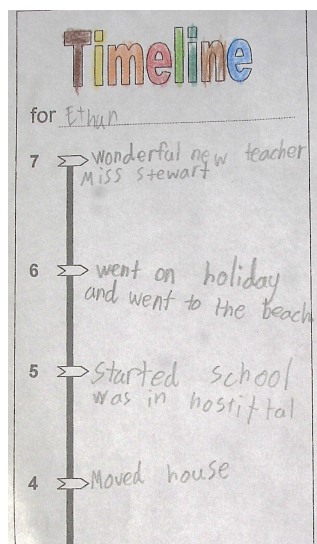 Timeline
for Ethan
7 wonderful new teacher
Miss Stewart
6 went on holiday
and went to the beach
5 Started school
was in hostittal
4 Moved house